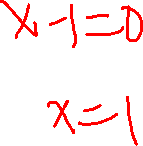 x-1=0
x=1